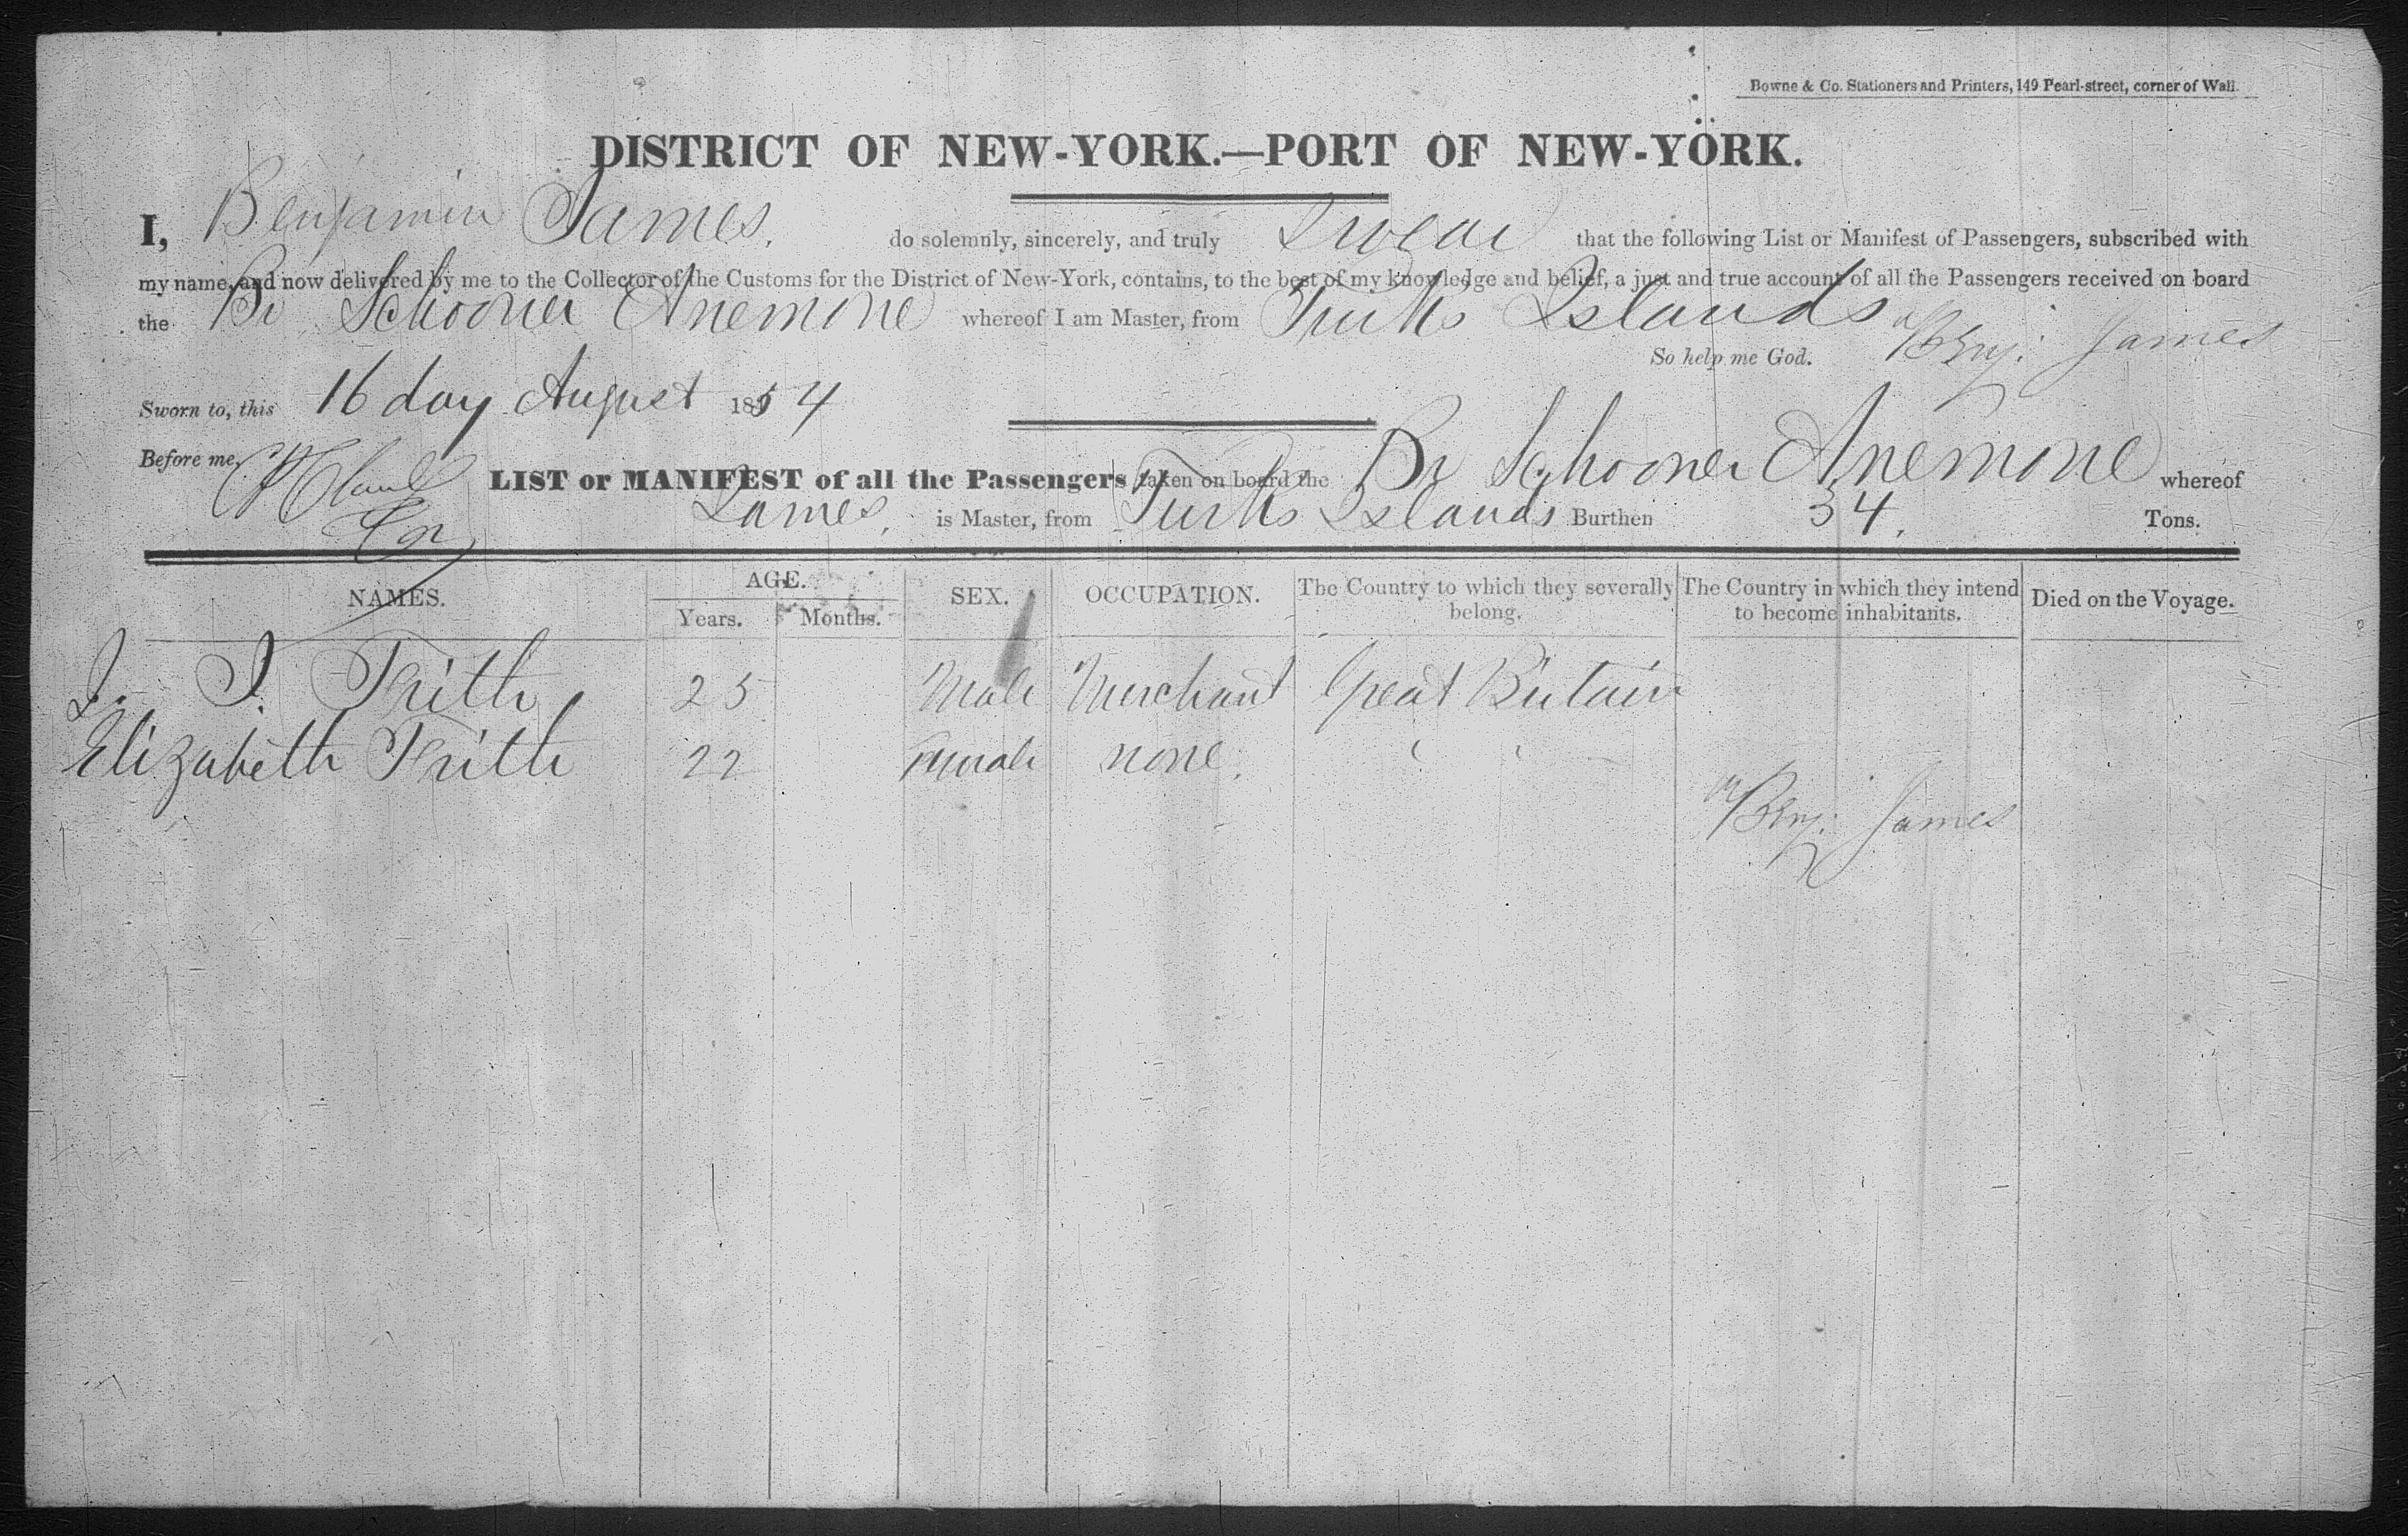 Bowne & Co. Stationers and Printers, 149 Pearl-street, corner of Wall.
DISTRICT OF NEW-YORK.—PORT OF NEW-YORK.
I, Benjamin James, do solemnly, sincerely, and truly Swear that the following List or Manifest of Passengers, subscribed with
my name, and now delivered by me to the Collector of the Customs for the District of New-York, contains, to the best of my knowledge and belief, a just and true account of all the Passengers received on board
the Br Schooner Anemone whereof I am Master, from Turks Islands
So help me God. Benj. James
Sworn to, this 16 day August 1854
Before me,
LIST or MANIFEST of all the Passengers taken on board the Br Schooner Anemone whereof
James, is Master, from Turks Islands Burthen 54. Tons.
NAMES. AGE. Years. Months. SEX. OCCUPATION. The Country to which they severally belong. The Country in which they intend to become inhabitants. Died on the Voyage.
J. J. Frith 25 Male Merchant Great Britain
Elizabeth Frith 22 Female none. " "
Benj. James